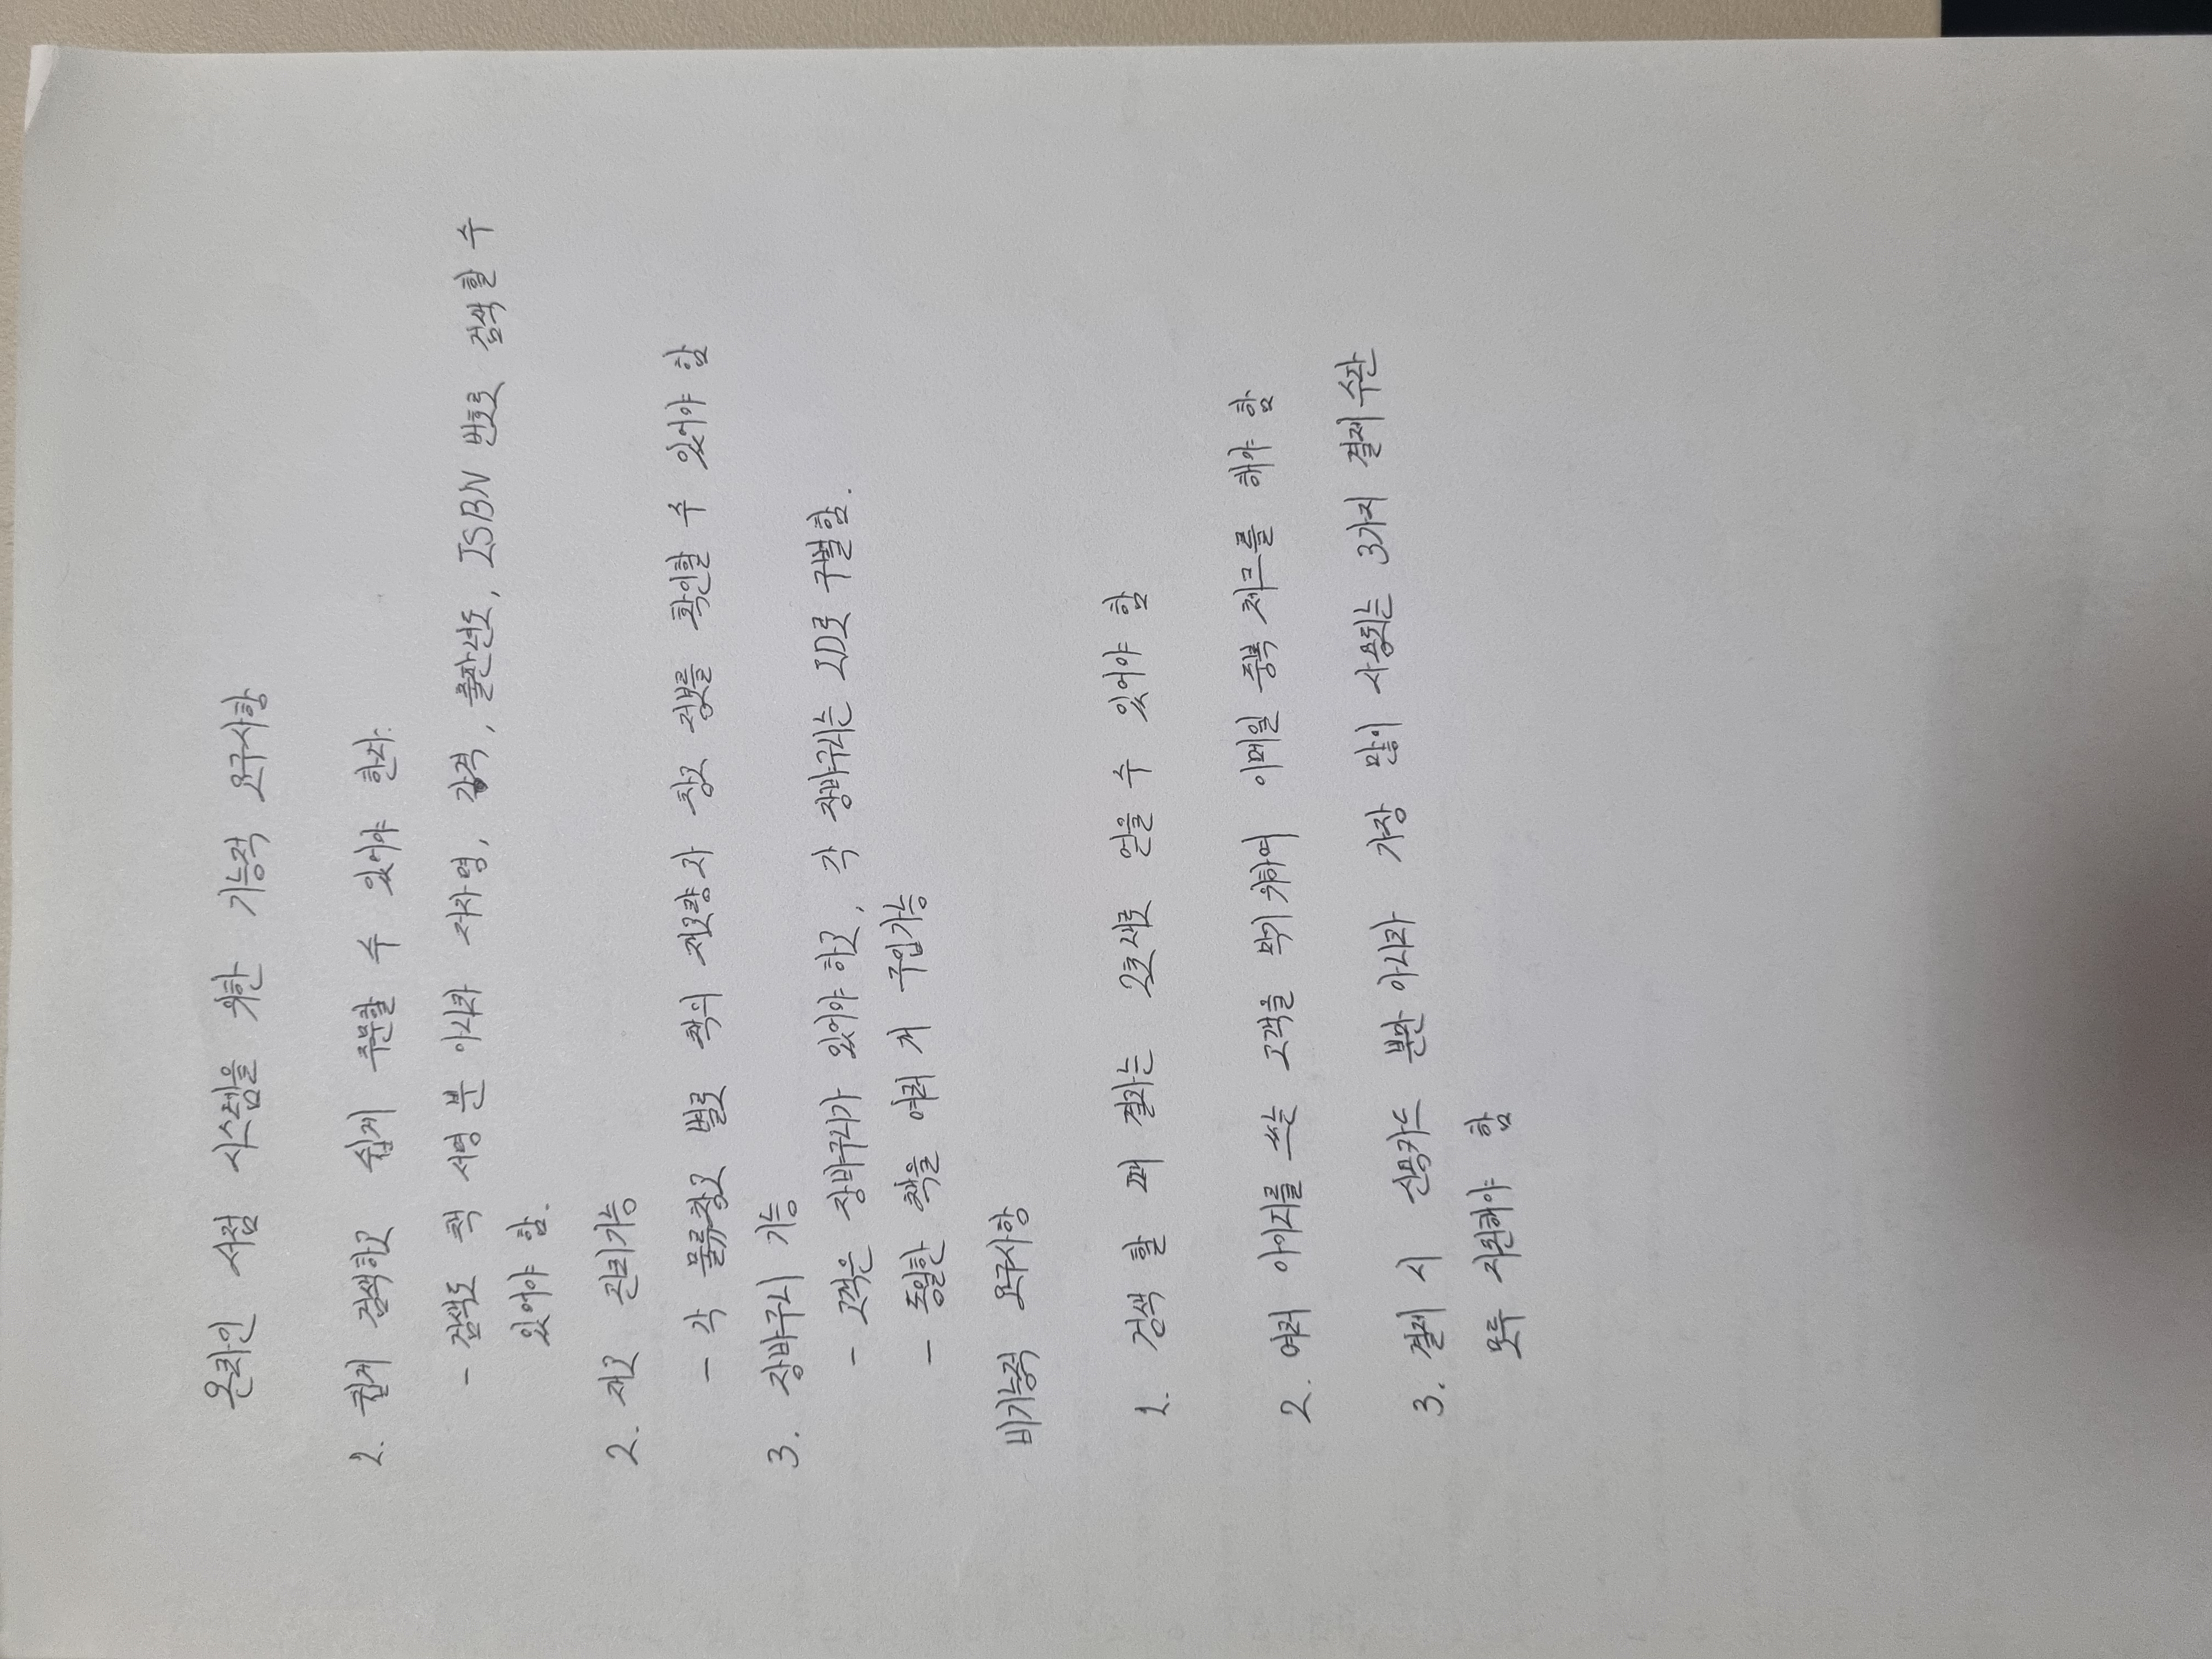 온라인 서점 시스템을 위한 기능적 요구사항
1. 쉽게 검색하고 쉽게 주문할 수 있어야 한다.
- 검색도 책 서명 뿐 아니라 저자명, 가격, 출판년도, ISBN 번호로 검색할 수
있어야 함.
2. 재고 관리기능
- 각 물류창고 별로 책의 재고량과 창고 정보를 확인할 수 있어야 함
3. 장바구니 기능
- 고객은 장바구니가 있어야 하고, 각 장바구니는 ID로 구별함.
- 동일한 책을 여러 개 구입가능
비기능적 요구사항
1. 검색 할 때 결과는 2초내로 얻을 수 있어야 함
2. 여러 아이디를 쓰는 고객을 막기 위하여 이메일 중복 체크를 해야 함
3. 결제 시 신용카드 뿐만 아니라 가장 많이 사용되는 3가지 결제 수단
모두 지원해야 함